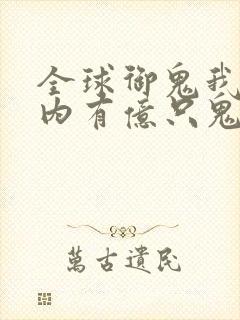 全球御鬼我
内有億只鬼
萬古遺民